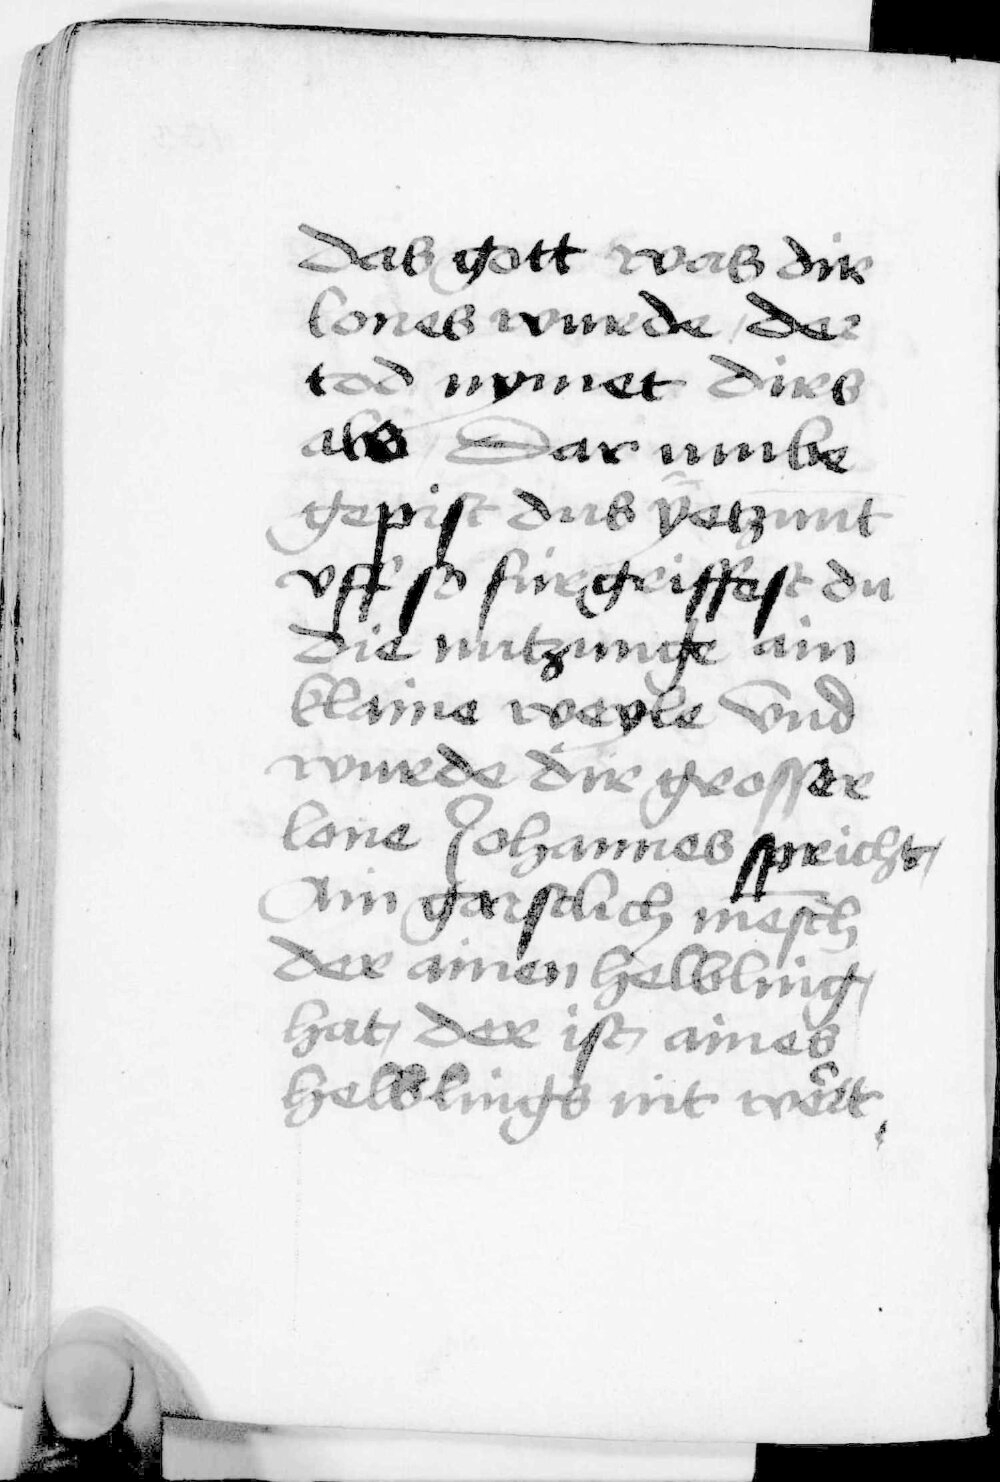 das gott was dir
lones wurde / der
tod nymet dirs
abe Dar umbe
gepist dus ÿetzunt
vff so fürgriffest du
die nutzunge ain
klaine weyle Vnd
wurde dir grosser
lone Johannes spricht /
Ain garstlich mēsch
der ainen helbling /
hat / der ist aines
helblings nit wertt